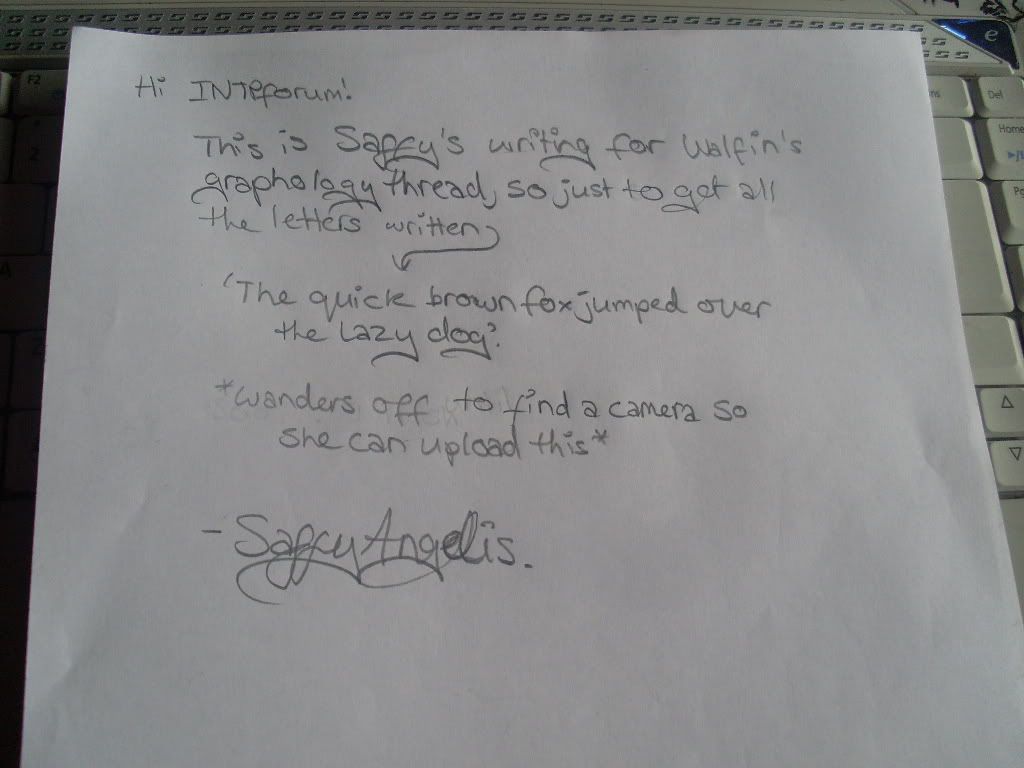 Hi INTPforum!
This is Saffy's writing for Walfin's
graphology thread, so just to get all
the letters written
'The quick brown fox jumped over
the lazy dog'.
*wanders off to find a camera so
she can upload this*
- Saffy Angelis.
F2
2
Del
Home
e